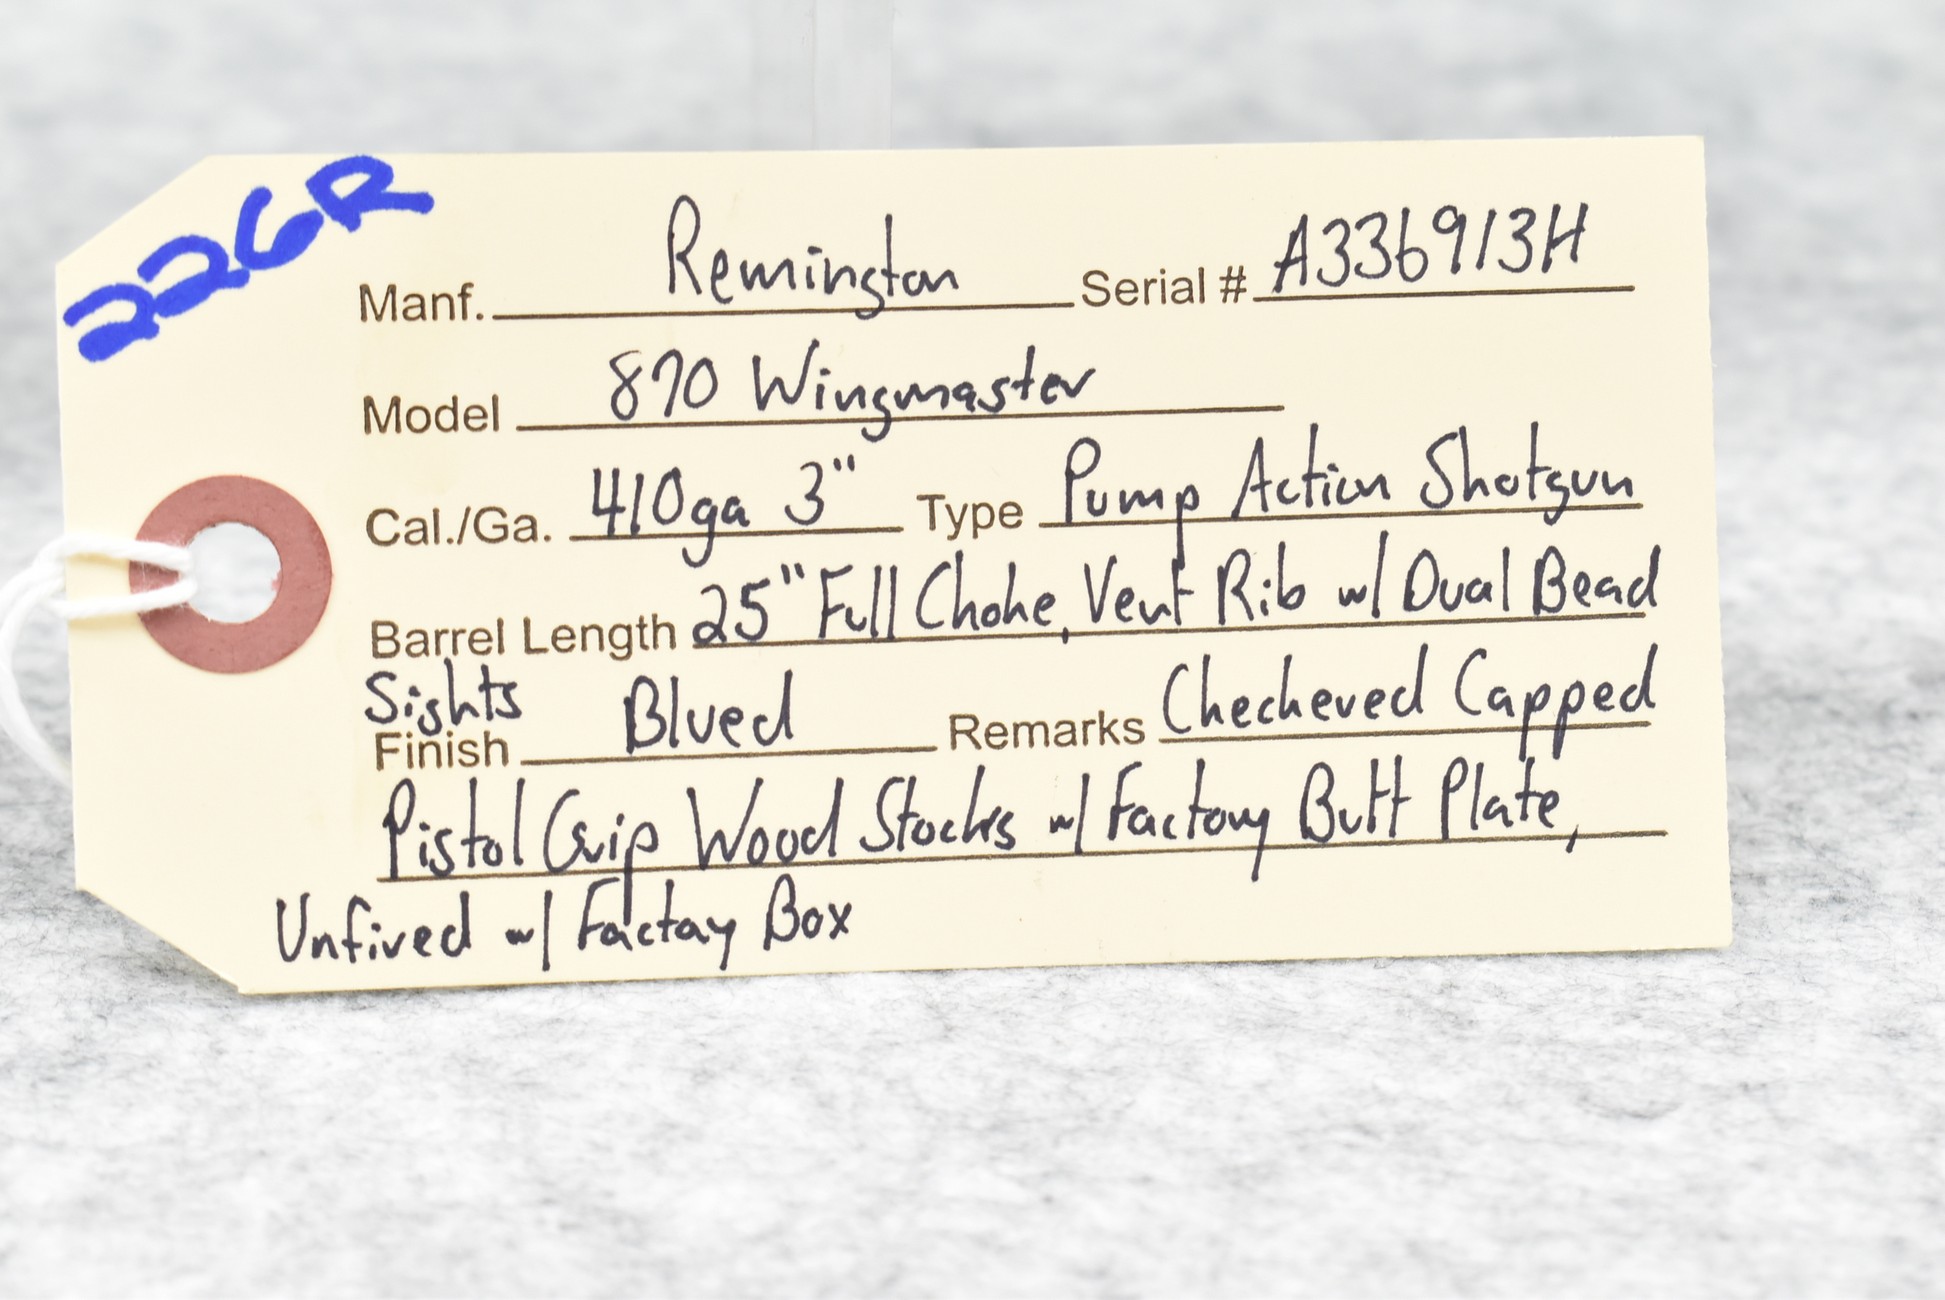 226R
Manf. Remington Serial # A336913H
Model 870 Wingmaster
Cal./Ga. 410ga 3" Type Pump Action Shotgun
Barrel Length 25" Full Choke, Vent Rib w/ Dual Bead
Sights
Finish Blued Remarks Checkered Capped
Pistol Grip Wood Stocks w/ Factory Butt Plate,
Unfired w/ Factory Box